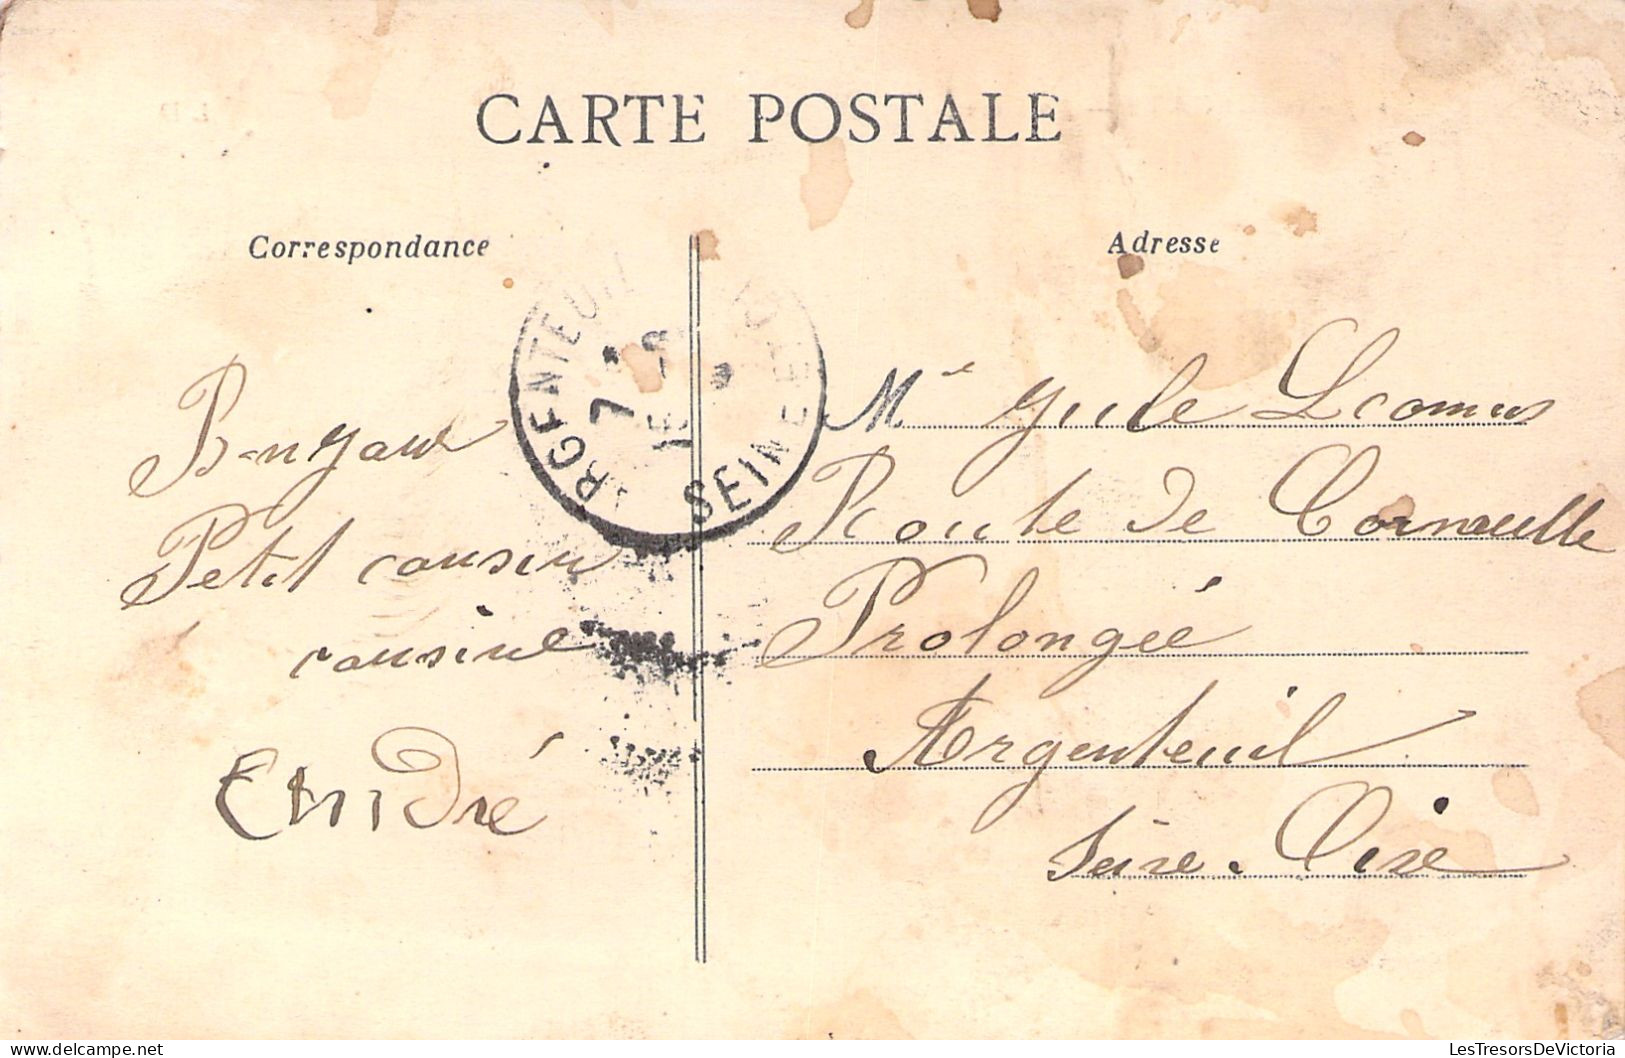 CARTE POSTALE
Correspondance
Adresse
ARGENTEUIL
7
SEINE
Bonjour
Petit cousin
cousine
André
Mr Jule
Route de Cormeille
Prolongée
Argenteuil
Seine. Oise
LesTresorsDeVictoria